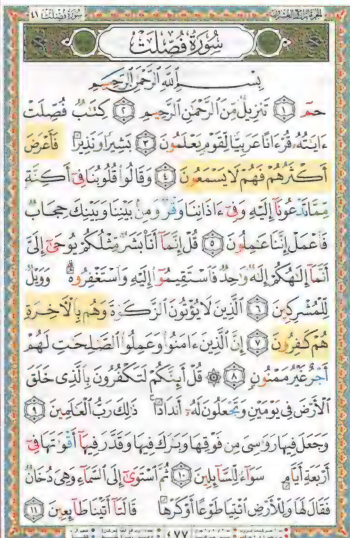 سُورَةُ فُصِّلَت ٤١
سُورَةُ فُصِّلَتْ
بِسْمِ ٱللَّهِ ٱلرَّحْمَٰنِ ٱلرَّحِيمِ
حمٓ ١ تَنزِيلٌ مِّنَ ٱلرَّحْمَٰنِ ٱلرَّحِيمِ ٢ كِتَٰبٌ فُصِّلَتْ
ءَايَٰتُهُۥ قُرْءَانًا عَرَبِيًّا لِّقَوْمٍ يَعْلَمُونَ ٣ بَشِيرًا وَنَذِيرًا فَأَعْرَضَ
أَكْثَرُهُمْ فَهُمْ لَا يَسْمَعُونَ ٤ وَقَالُوا۟ قُلُوبُنَا فِىٓ أَكِنَّةٍ
مِّمَّا تَدْعُونَآ إِلَيْهِ وَفِىٓ ءَاذَانِنَا وَقْرٌ وَمِنۢ بَيْنِنَا وَبَيْنِكَ حِجَابٌ
فَٱعْمَلْ إِنَّنَا عَٰمِلُونَ ٥ قُلْ إِنَّمَآ أَنَا۠ بَشَرٌ مِّثْلُكُمْ يُوحَىٰٓ إِلَىَّ
أَنَّمَآ إِلَٰهُكُمْ إِلَٰهٌ وَٰحِدٌ فَٱسْتَقِيمُوٓا۟ إِلَيْهِ وَٱسْتَغْفِرُوهُ ۗ وَوَيْلٌ
لِّلْمُشْرِكِينَ ٦ ٱلَّذِينَ لَا يُؤْتُونَ ٱلزَّكَوٰةَ وَهُم بِٱلْءَاخِرَةِ
هُمْ كَٰفِرُونَ ٧ إِنَّ ٱلَّذِينَ ءَامَنُوا۟ وَعَمِلُوا۟ ٱلصَّٰلِحَٰتِ لَهُمْ
أَجْرٌ غَيْرُ مَمْنُونٍ ٨ ۞ قُلْ أَئِنَّكُمْ لَتَكْفُرُونَ بِٱلَّذِى خَلَقَ
ٱلْأَرْضَ فِى يَوْمَيْنِ وَتَجْعَلُونَ لَهُۥٓ أَندَادًا ۚ ذَٰلِكَ رَبُّ ٱلْعَٰلَمِينَ ٩
وَجَعَلَ فِيهَا رَوَٰسِىَ مِن فَوْقِهَا وَبَٰرَكَ فِيهَا وَقَدَّرَ فِيهَآ أَقْوَٰتَهَا فِىٓ
أَرْبَعَةِ أَيَّامٍ سَوَآءً لِّلسَّآئِلِينَ ١٠ ثُمَّ ٱسْتَوَىٰٓ إِلَى ٱلسَّمَآءِ وَهِىَ دُخَانٌ
فَقَالَ لَهَا وَلِلْأَرْضِ ٱئْتِيَا طَوْعًا أَوْ كَرْهًا قَالَتَآ أَتَيْنَا طَآئِعِينَ ١١
٤٧٧